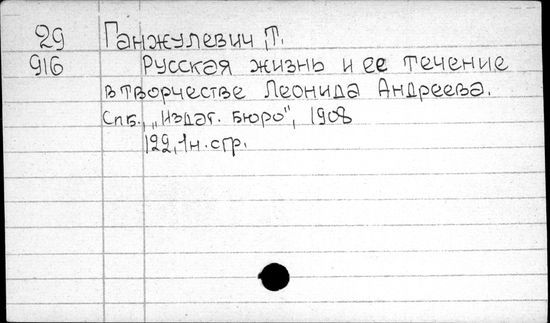 29 Ганжулевич, Т.
916 Русская жизнь и ее течение
в творчестве Леонида Андреева.
Спб., „Издат. Бюро", 1908
122, 1н. стр.